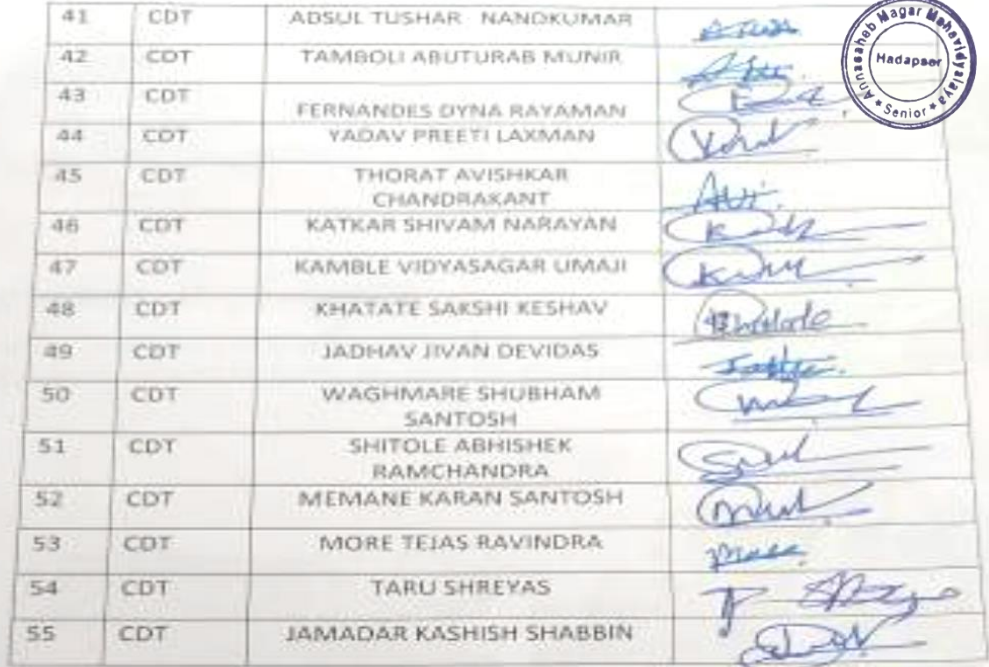 41 CDT ADSUL TUSHAR NANDKUMAR
42 CDT TAMBOLI ABUTURAB MUNIR
43 CDT FERNANDES DYNA RAYAMAN
44 CDT YADAV PREETI LAXMAN
45 CDT THORAT AVISHKAR
CHANDRAKANT
46 CDT KATKAR SHIVAM NARAYAN
47 CDT KAMBLE VIDYASAGAR UMAJI
48 CDT KHATATE SAKSHI KESHAV
49 CDT JADHAV JIVAN DEVIDAS
50 CDT WAGHMARE SHUBHAM
SANTOSH
51 CDT SHITOLE ABHISHEK
RAMCHANDRA
52 CDT MEMANE KARAN SANTOSH
53 CDT MORE TEJAS RAVINDRA
54 CDT TARU SHREYAS
55 CDT JAMADAR KASHISH SHABBIN
Annasaheb Magar Mahavidyalaya
Hadapser
★ Senior ★